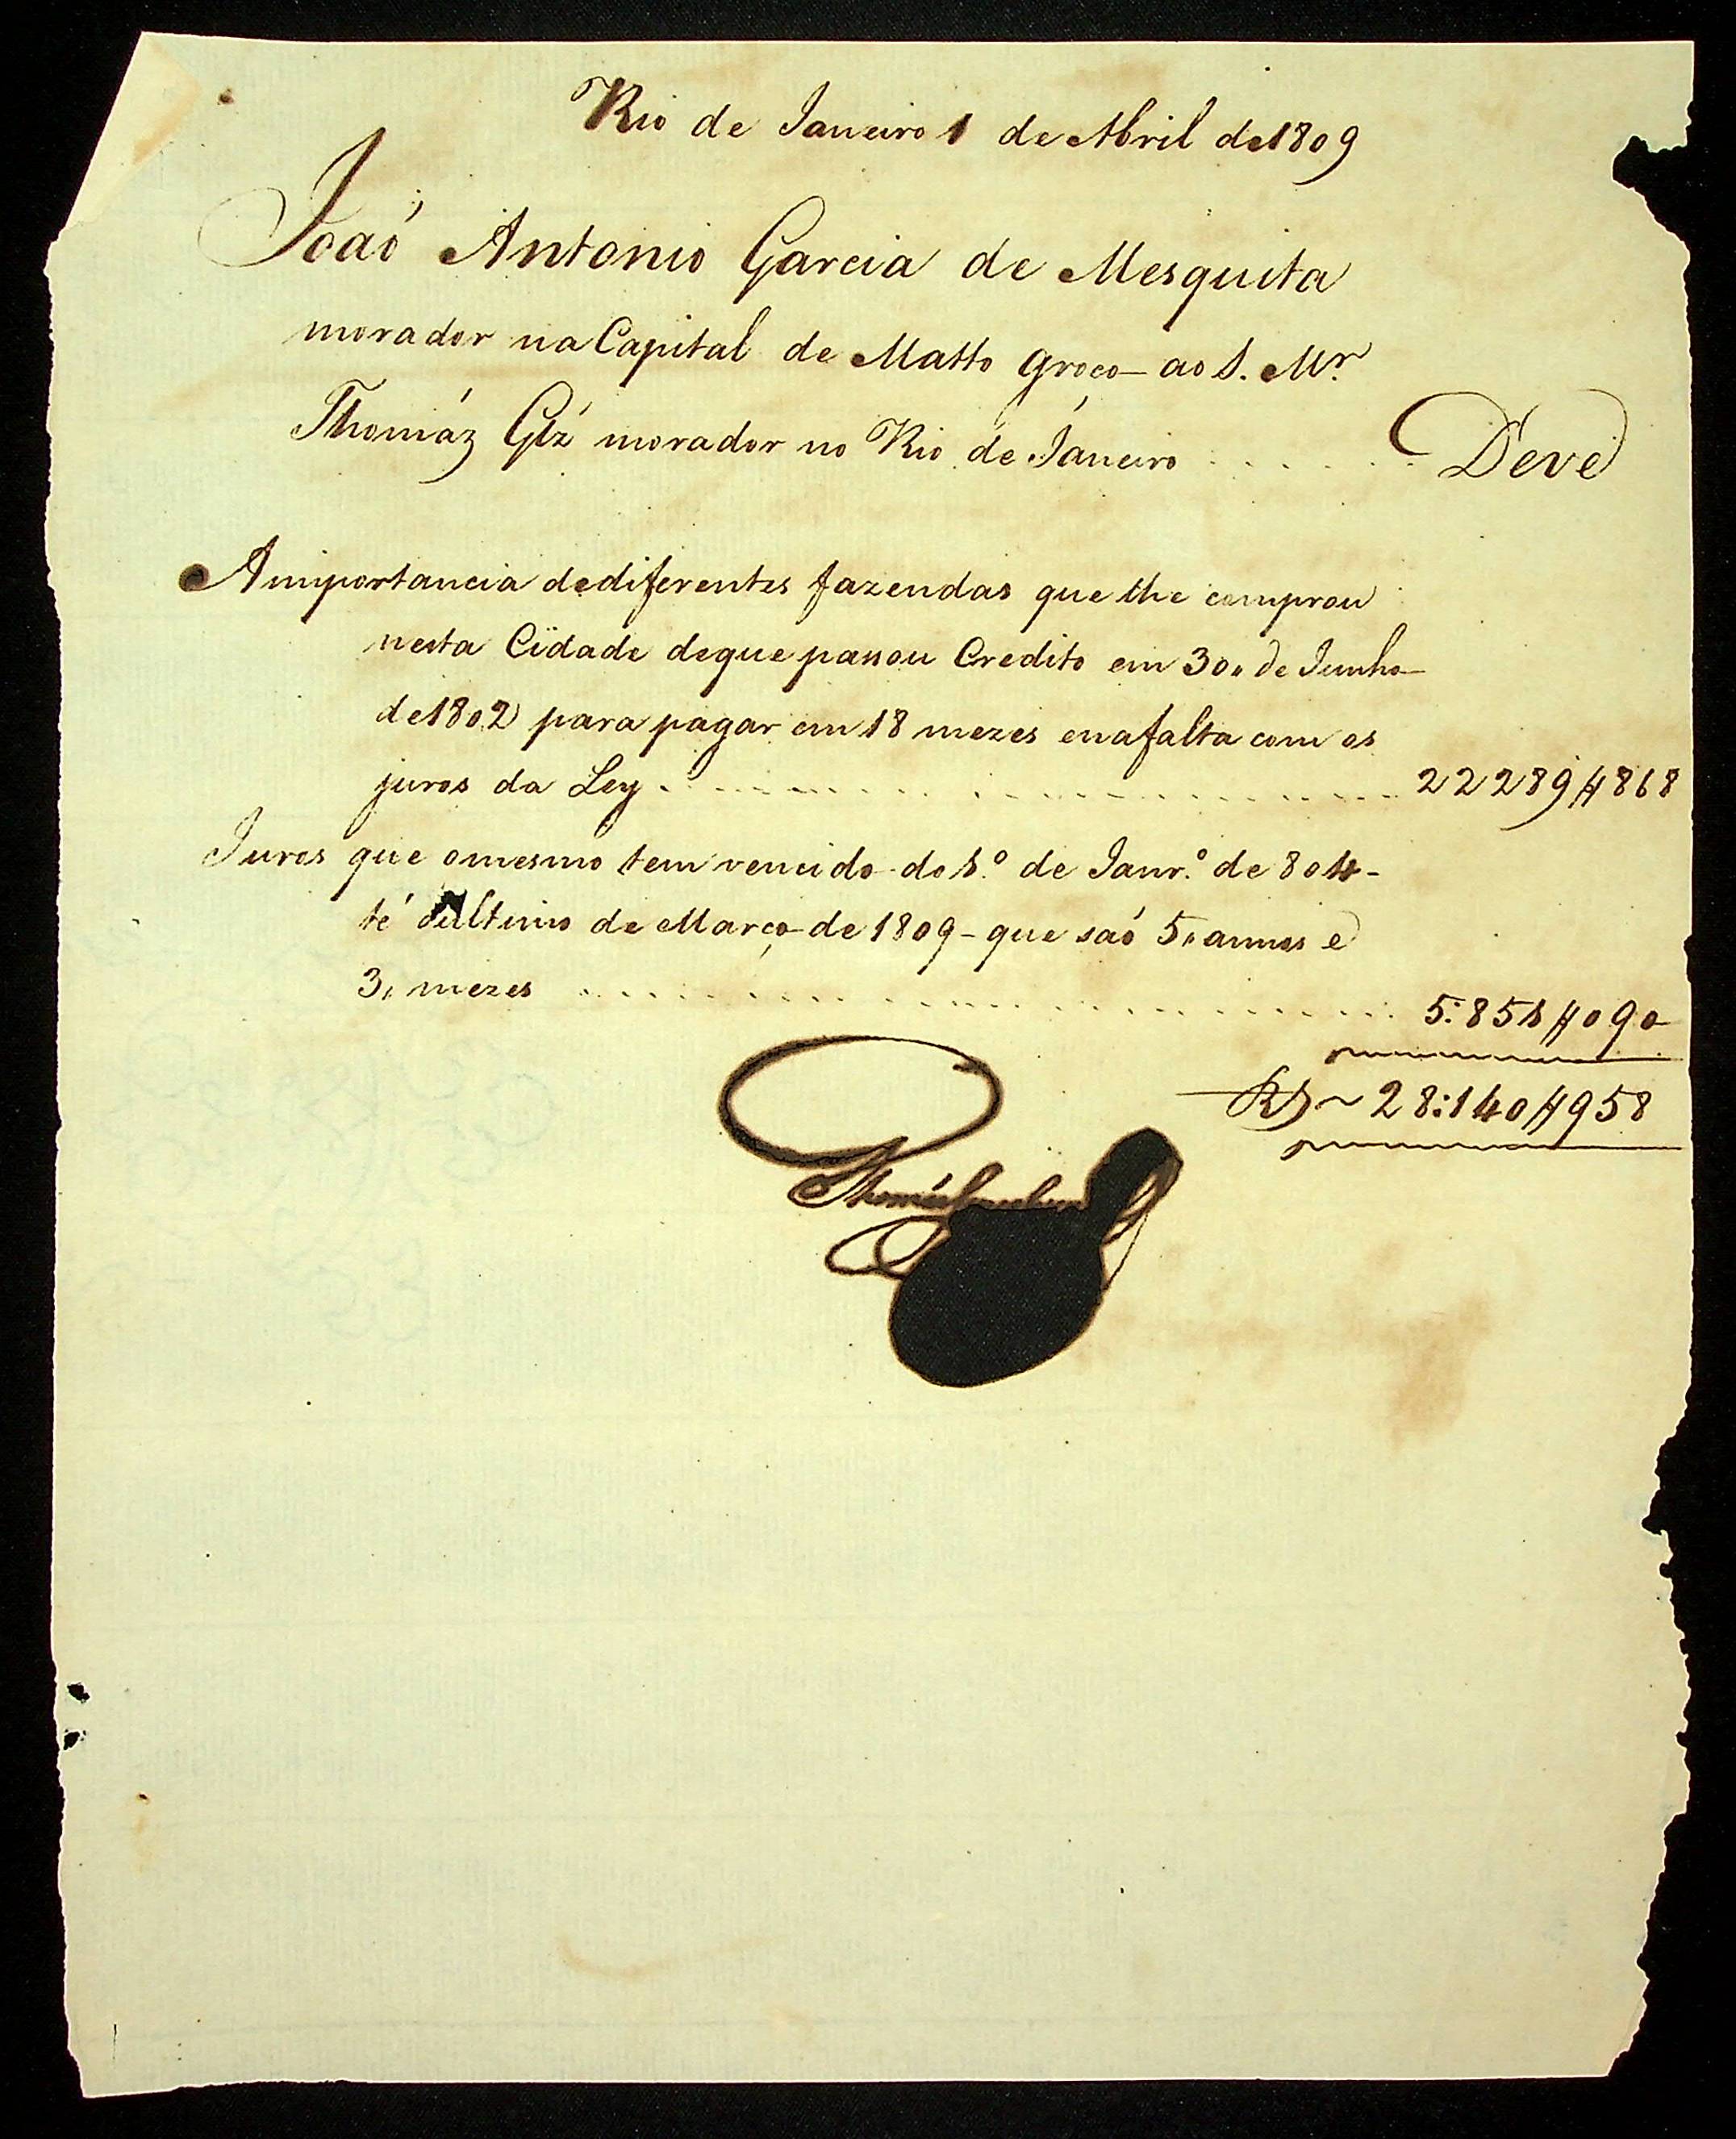 Rio de Janeiro 1 de Abril de 1809
Joaó Antonio Garcia de Mesquita
morador na Capital de Matto Groço ao S. Mr.
Thomáz Glz´ morador no Rio de Janeiro . . . . . . . Deve
A importancia de diferentes fazendas que lhe comprou
nesta Cidade de que passou Credito em 30,, de Junho
de 1802 para pagar em 18 mezes e na falta com os
juros da Ley . . . . . . . . . . . . . . . . 22289$868
Juros que o mesmo tem vencido do 1.º de Janr.º de 804
té o ultimo de Março de 1809 - que saó 5,, annos e
3,, mezes . . . . . . . . . . . . . . . . 5:851$090
RS ~ 28:140$958